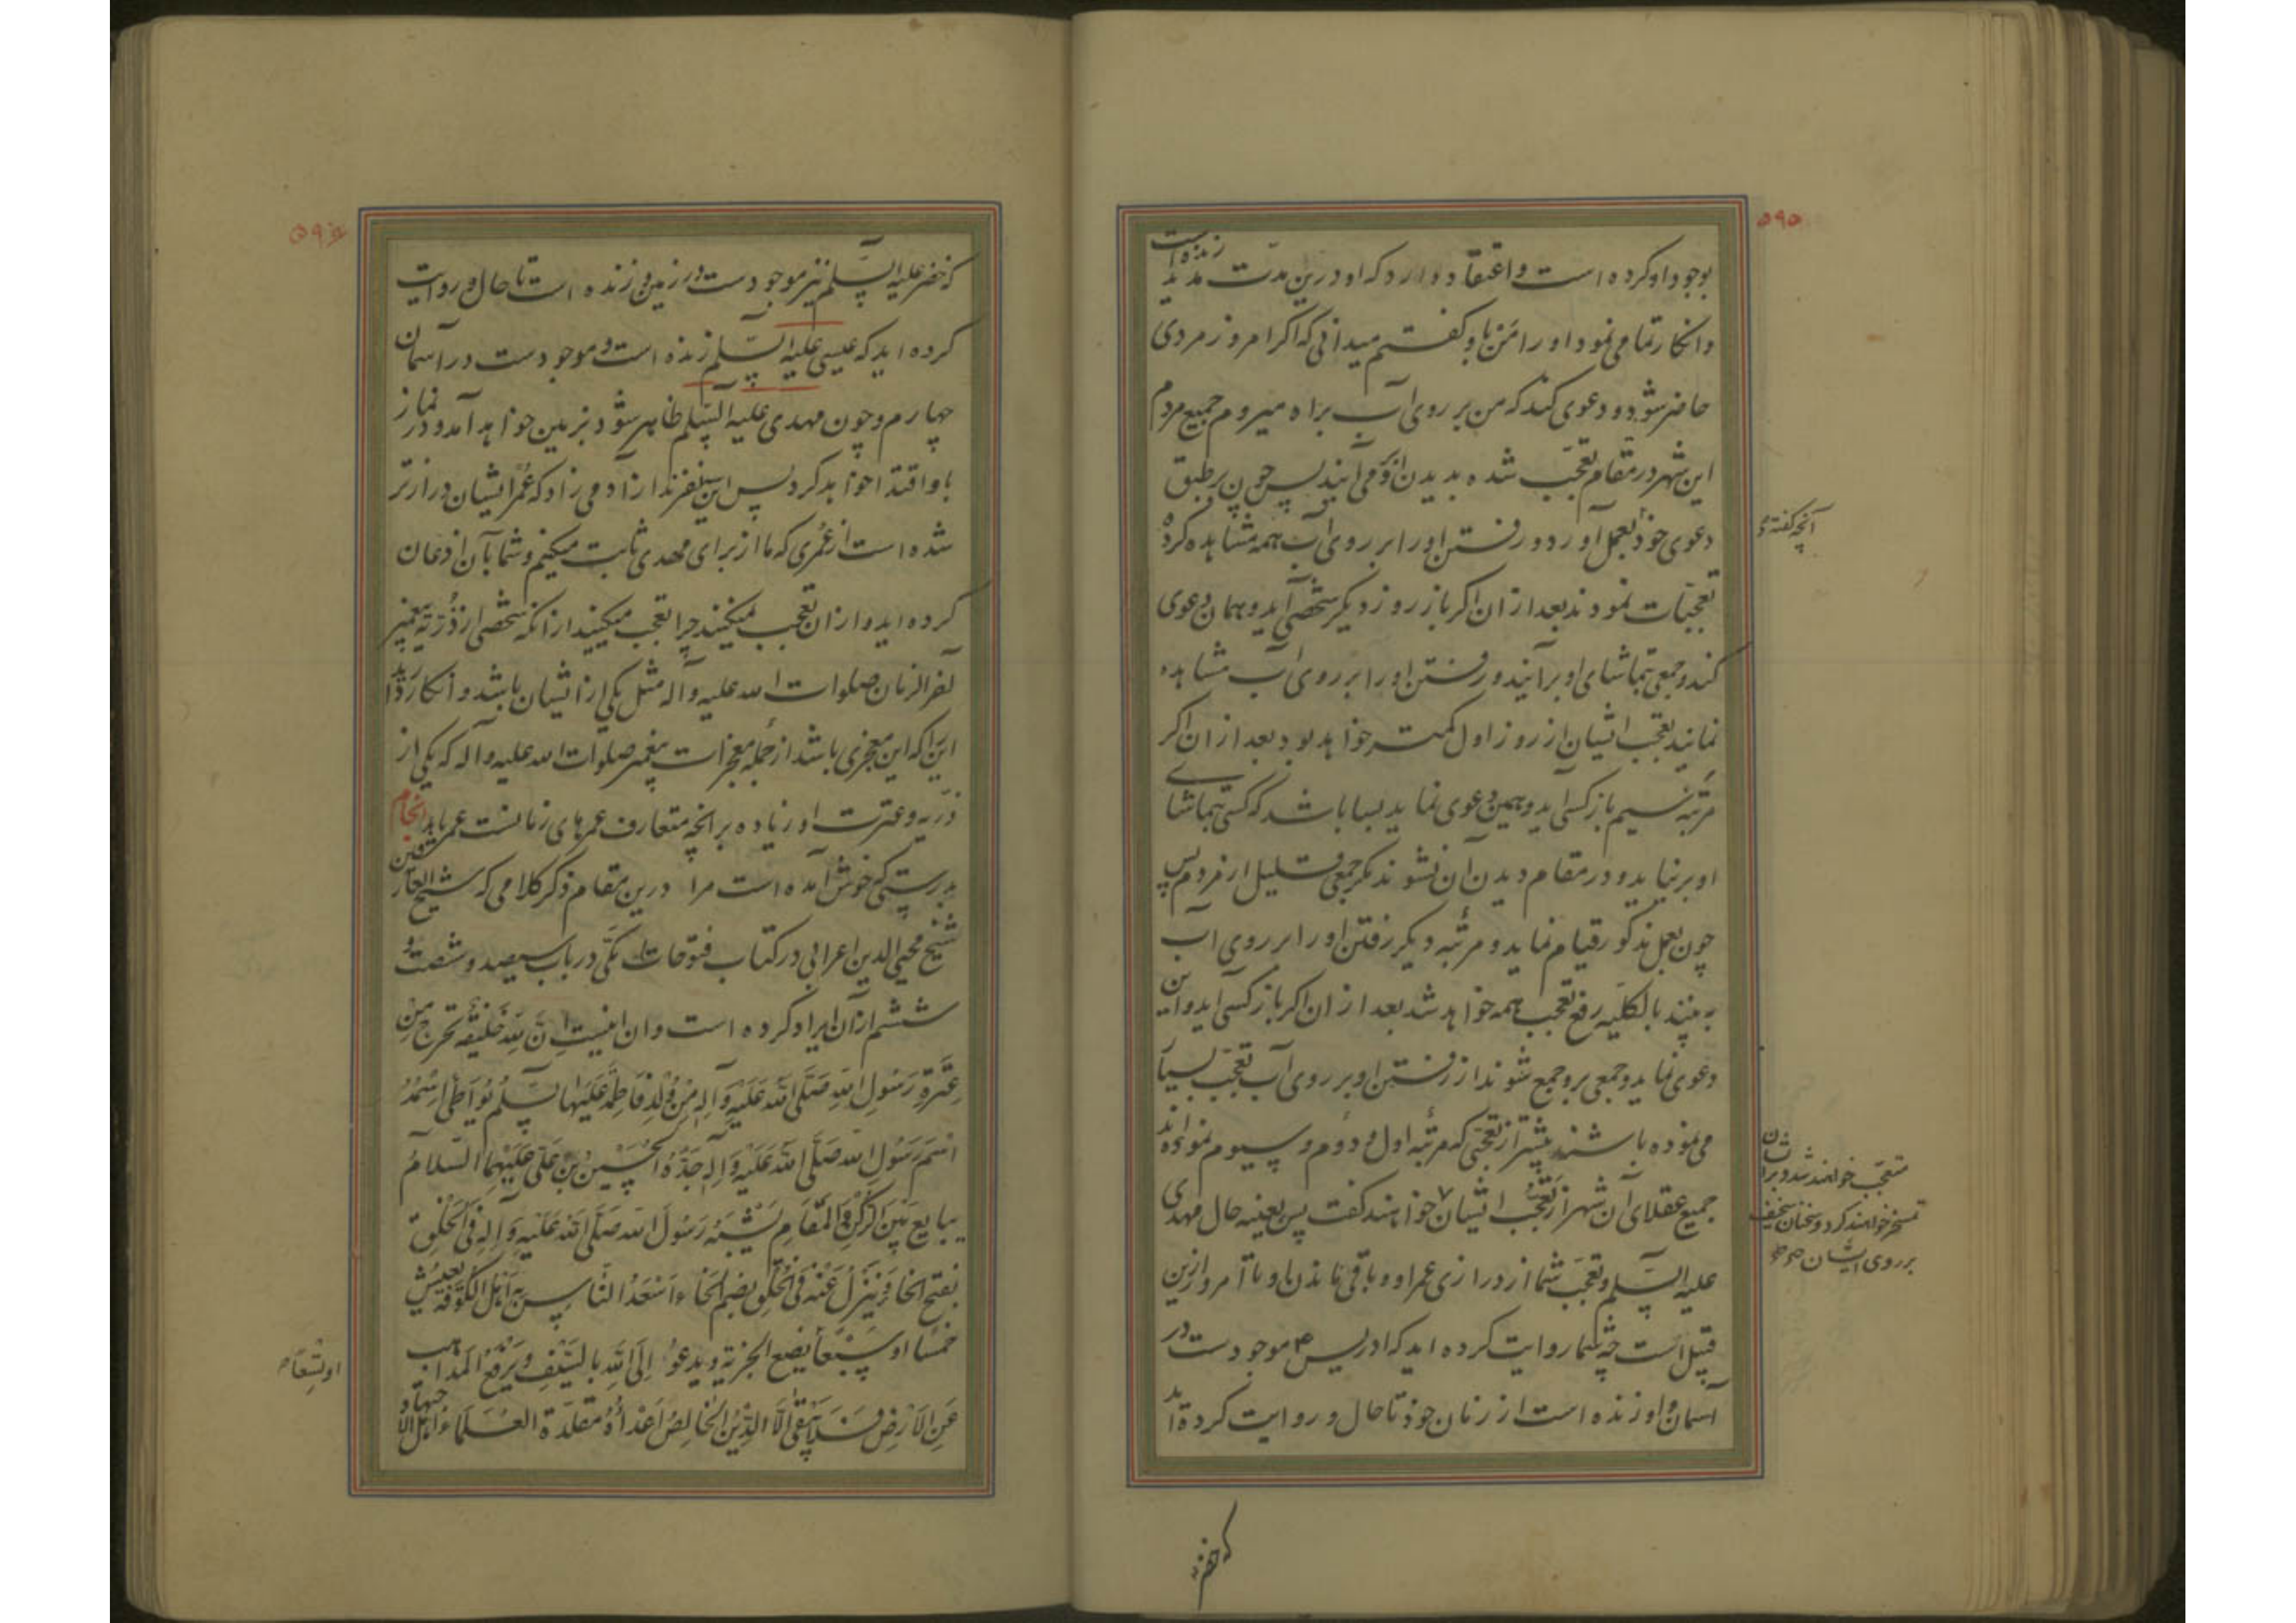 ۵۹۵
بوجود او کرده است و اعتقاد دارد که او درین مدت مدید زنده است
و انکار تمامی نمود او را من باو گفتم میدانی که اگر امروز مردی
حاضر شود و دعوی کند که من بر روی آب براه میروم جمیع مردم
این شهر در مقام تعجب شده بدیدن او می آیند پس چون بر طبق
دعوی خود بعمل آورد و رفتن او را بر روی آب همه مشاهده کرده
آنچه گفته
تعجبات نمودند بعد از ان اکر باز روز دیکر شخصی آید و همان دعوی
کند و جمعی بتماشای او برآیند و رفتن او را بر روی آب مشاهده
نمایند تعجب ایشان از روز اول کمتر خواهد بود بعد از ان اکر
مرتبه سیم باز کسی آید و همین دعوی نماید بسا باشد که کسی بتماشای
او بر نیاید و در مقام دیدن آن نشوند مکر جمعی قلیل از مردم پس
چون بعمل مذکور قیام نماید و مرتبه دیکر رفتن او را بر روی آب
به بینند بالکلیه رفع تعجب همه خواهد شد بعد از ان اکر باز کسی آید و این
دعوی نماید و جمعی برو جمع شوند از رفتن او بر روی آب تعجب بسیار
می نموده باشند بیشتر از تعجبی که مرتبه اول و دوم و سیوم نموده اند
جمیع عقلای آن شهر از تعجب ایشان خواهند گفت پس بعینه حال مهدی
متعجب خواهند شد و بر ایشان
تمسخر خواهند کرد و سخنان سخیف
بر روی ایشان
علیه السلام و تعجب شما از درازی عمر او و باقی ماندن او تا امروز ازین
قبیل است چه شما روایت کرده اید که ادریس موجودست در
آسمان و او زنده است از زمان خود تا حال و روایت کرده اید
که خضر
۵۹۶
که خضر علیه السلم نیز موجودست در زمین و زنده است تا حال و روایت
کرده اید که عیسی علیه السلم زنده است و موجودست در آسمان
چهارم و چون مهدی علیه السلم ظاهر شود بزمین خواهد آمد و در نماز
باو اقتدا خواهد کرد پس این سه نفرند از آدمی زاد که عمر ایشان درازتر
شده است از عمری که ما از برای مهدی ثابت میکنیم و شما بآن اذعان
کرده اید و از ان تعجب نمیکنید چرا تعجب میکنید از انکه شخصی از ذریه پیغمبر
آخر الزمان صلوات الله علیه و آله مثل یکی از ایشان باشد و انکار دارید
این را که این معجزی باشد از جمله معجزات پیغمبر صلوات الله علیه و آله که یکی از
ذریه و عترت او زیاده بر آنچه متعارف عمرهای زمانست عمر یابد انجام
بدرستی که خوش آمده است مرا درین مقام ذکر کلامی که شیخ العارفین
شیخ محیی الدین اعرابی در کتاب فتوحات مکی در باب سیصد و شصت و
ششم از آن ایراد کرده است و ان اینست اِنَّ لِلّٰهِ خَلیفَةً تخرج مِنْ
عِتْرَةِ رَسُولِ اللّٰهِ صَلَّی اللّٰهُ عَلَیْهِ وَآلِهِ مِنْ وُلْدِ فَاطِمَةَ عَلَیْهَا السَّلم یُوَاطِیُٔ اسْمُهُ
اسْمَ رَسُولِ اللّٰهِ صَلَّی اللّٰهُ عَلَیْهِ وَآلِهِ جَدُّهُ الْحُسَیْنُ بْنُ عَلِیٍّ عَلَیْهِمَا السَّلَامُ
یبایع بَیْنَ الرُّکْنِ وَالْمَقَامِ یُشْبِهُ رَسُولَ اللّٰهِ صَلَّی اللّٰهُ عَلَیْهِ وَآلِهِ فِی الْخَلْقِ
بفتح الخا وَ یَنْزِلُ عَنْهُ فِی الْخُلْقِ بضم الْخَاء اَسْعَدُ النَّاسِ بِهِ اَهْلُ الْکُوفَةِ یَعِیشُ
خَمْسًا او سَبْعًا یضع الجزیة و یدعو اِلَی اللّٰهِ بِالسَّیْفِ وَ یَرْفَعُ الْمَذَاهِبَ
او تِسْعًا
عَنِ الاَرْضِ فَلَا یَبْقَی اِلَّا الدِّینُ الْخَالِصُ اَعْدَاؤُهُ مُقَلِّدَة العُلَمَاءِ اَهْل الاجتهاد